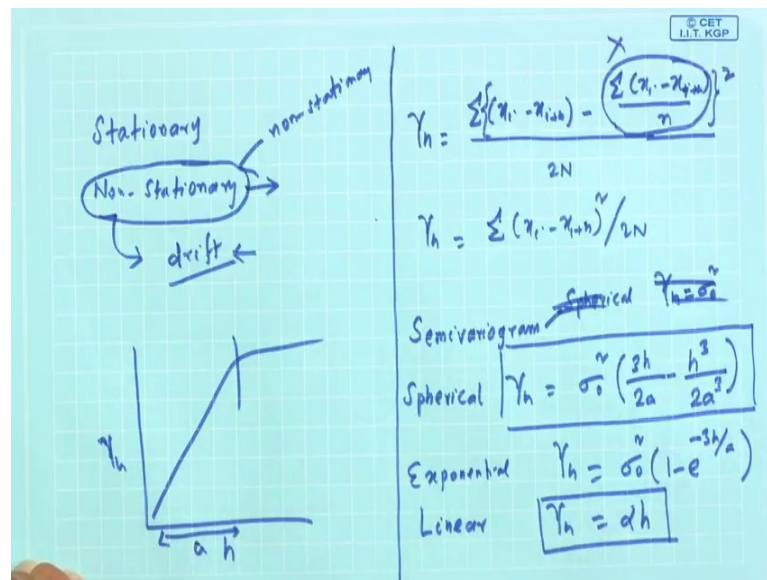 © CET
I.I.T. KGP
Stationary
non-stationary
Non-Stationary
drift
γh
a h
X
γh = Σ{(xi - xi+h) - Σ(xi - xi+h)/n}² / 2N
γh = Σ(xi - xi+h)² / 2N
Semivariogram
Spherical γh = σ0²
Spherical γh = σ0² (3h/2a - h³/2a³)
Exponential γh = σ0² (1-e^-3h/a)
Linear γh = αh